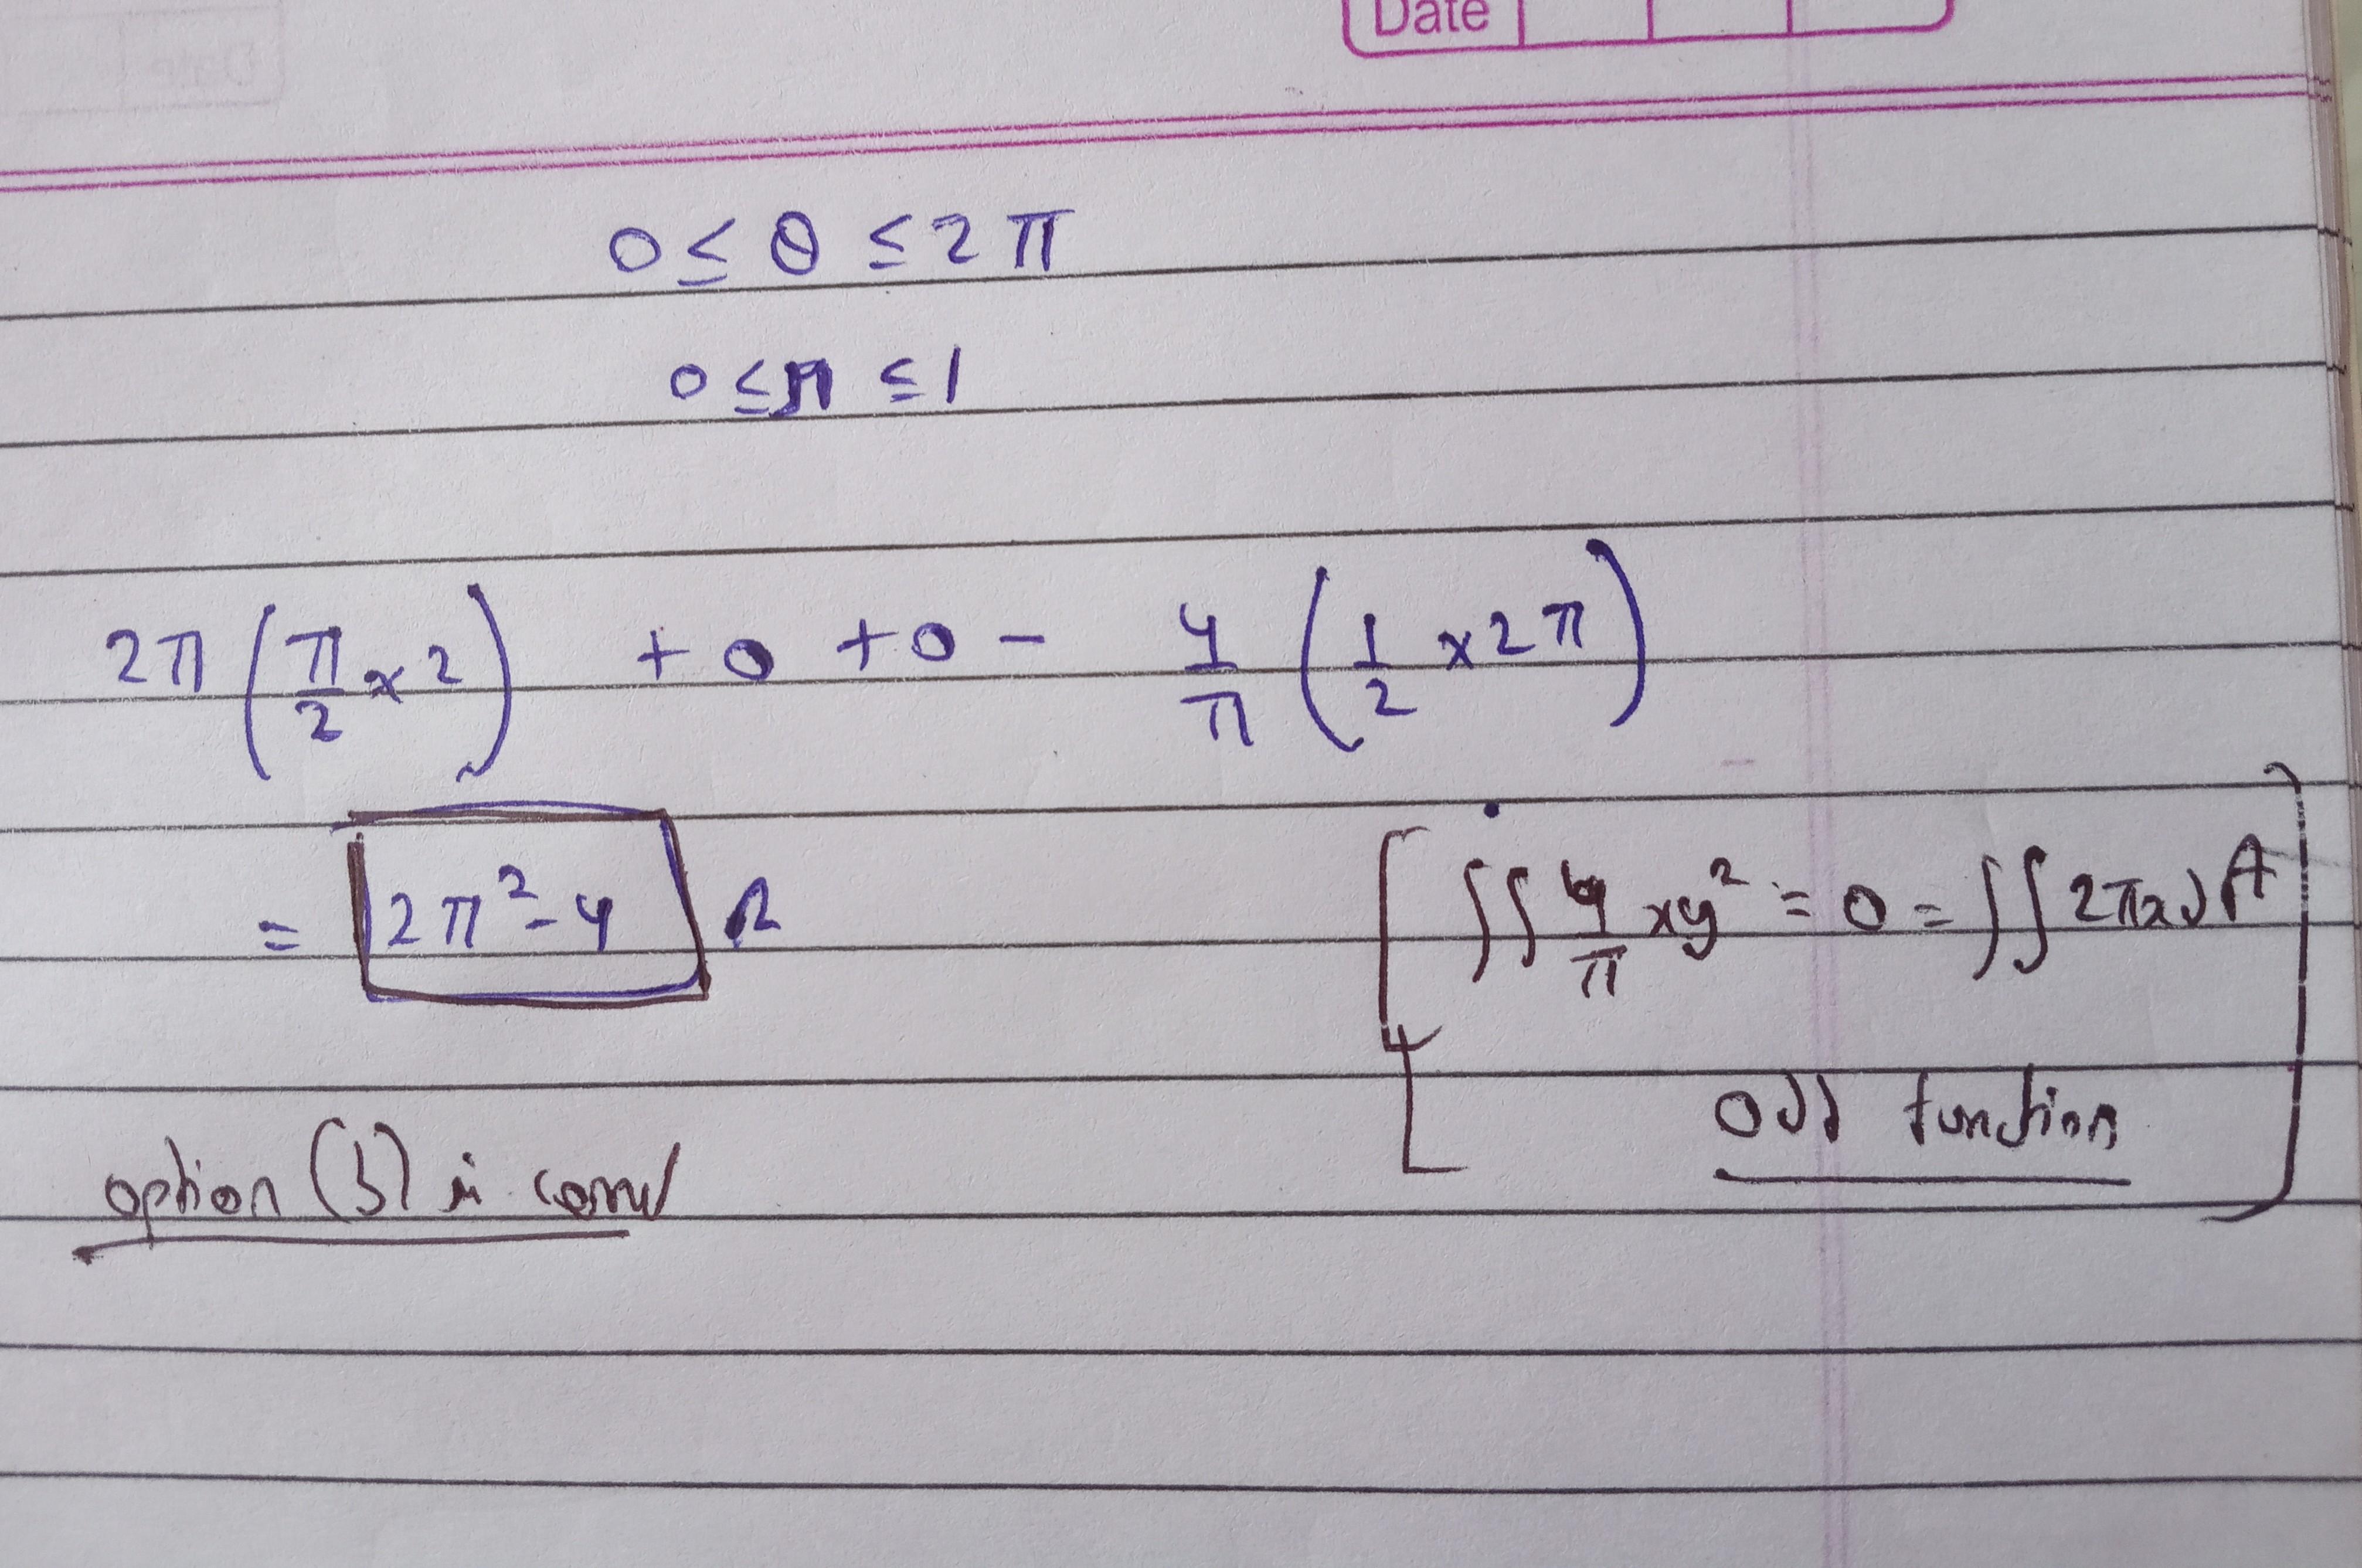 Date
0 ≤ θ ≤ 2π
0 ≤ r ≤ 1
2π (π/2 × 2) + 0 + 0 - 4/π (1/2 × 2π)
= 2π² - 4
[∫∫ 4/π xy² = 0 = ∫∫ 2πx dA]
odd function
option (3) is correct